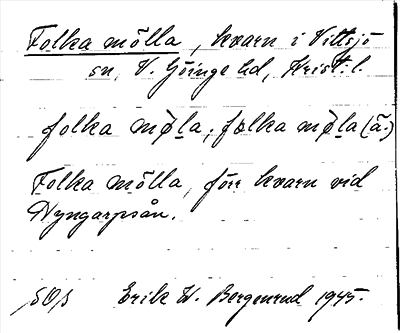 Folka mölla, kvarn i Vittsjö
sn, V. Göinge hd, Krist:l.
folka møla, følka møla (ä.)
Folka mölla, förr kvarn vid
Hyngarpsån.
Erik W. Bergenrud 1945.